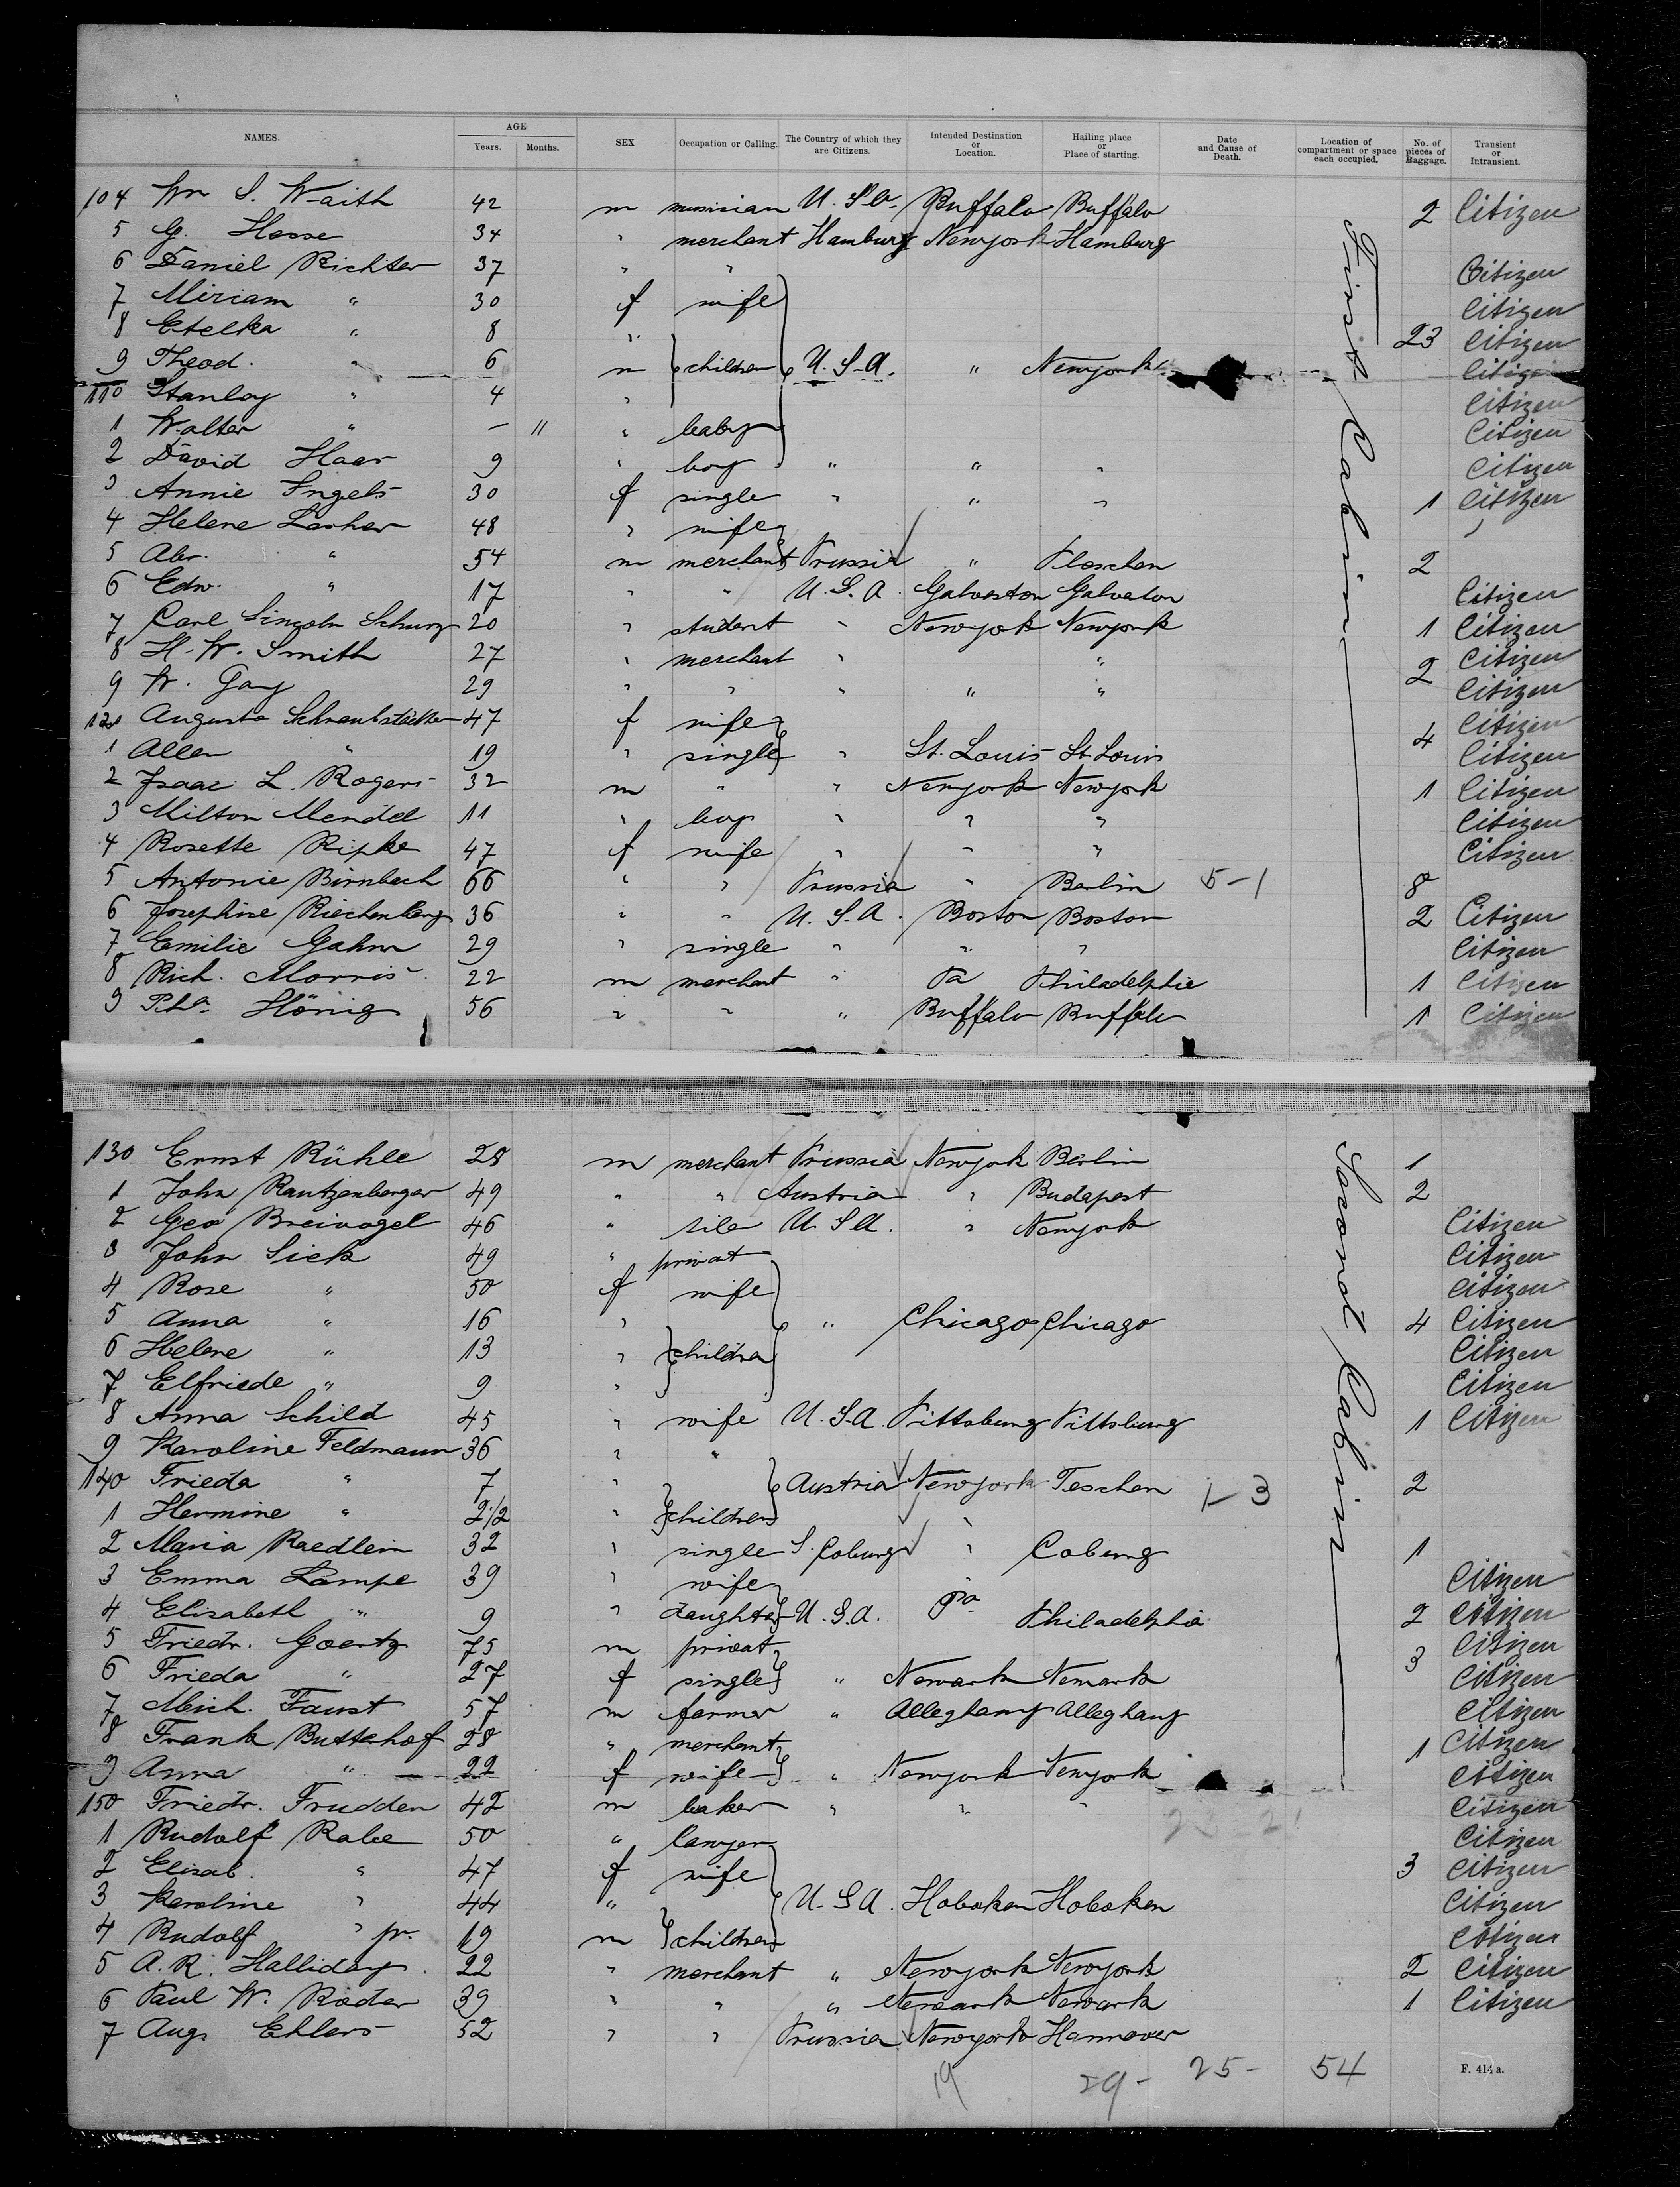 NAMES. AGE Years. Months. SEX Occupation or Calling. The Country of which they are Citizens. Intended Destination or Location. Hailing place or Place of starting. Date and Cause of Death. Location of compartment or space each occupied. No. of pieces of Baggage. Transient or Intransient.
104 Wm S. Waith 42 m musician U.S.A. Buffalo Buffalo 2 Citizen
5 G. Hesse 34 " merchant Hamburg Newyork Hamburg
6 Daniel Richter 37 " " Citizen
7 Miriam " 30 f wife Citizen
8 Etelka " 8 " 23 Citizen
9 Theod. " 6 m children U.S.A. " Newyork Citizen
110 Stanley " 4 " Citizen
1 Walter " — 11 " baby Citizen
2 David Haas 9 " boy " " " Citizen
3 Annie Engels 30 f single " " " 1 Citizen
4 Helene 48 " wife
5 Abr. " 54 m merchant Prussia " Pleschen 2
6 Edw. " 17 " " U.S.A. Galveston Galveston Citizen
7 Carl Lincoln Schurz 20 " student " Newyork Newyork 1 Citizen
8 H. W. Smith 27 " merchant " " 2 Citizen
9 W. Gay 29 " " " " " Citizen
120 Augusta 47 f wife 4 Citizen
1 " 19 " single " St. Louis St. Louis Citizen
2 Isaac L. Rogers 32 m " " Newyork Newyork 1 Citizen
3 Milton Mendel 11 " boy " " " Citizen
4 Rosette Ripke 47 f wife " " " Citizen
5 Antonie Birnbach 66 " " Prussia " Berlin 5-1 8
6 Josephine Riechenberg 36 " " U.S.A. Boston Boston 2 Citizen
7 Emilie Gahm 29 " single " " " Citizen
8 Rich. Morris 22 m merchant " Pa Philadelphia 1 Citizen
9 Hönig 56 " " " Buffalo Buffalo 1 Citizen
First Cabin
130 Ernst Rühle 28 m merchant Prussia Newyork Berlin 1
1 John Rautzenberger 49 " " Austria " Budapest 2
2 Geo Breivogel 46 " U.S.A. " Newyork Citizen
3 John Sick 49 " privat Citizen
4 Rose " 50 f wife Citizen
5 Anna " 16 " " Chicago Chicago 4 Citizen
6 Helene " 13 " children Citizen
7 Elfriede " 9 " Citizen
8 Anna Schild 45 " wife U.S.A. Pittsburg Pittsburg 1 Citizen
9 Karoline Feldmann 36 " "
140 Frieda " 7 " Austria Newyork Teschen 1-3 2
1 Hermine " 2 1/2 " children "
2 Maria Raedlein 32 " single S. Coburg " Coburg 1
3 Emma Lampe 39 " wife Citizen
4 Elisabeth " 9 " daughter U.S.A. Pa Philadelphia 2 Citizen
5 Friedr. Goertz 75 m privat 3 Citizen
6 Frieda " 27 f single " Newark Newark Citizen
7 Mich. Faust 57 m farmer " Alleghany Alleghany Citizen
8 Frank Butterhof 28 " merchant 1 Citizen
9 Anna " 22 f wife " Newyork Newyork Citizen
150 Friedr. Frudden 42 m baker " " " Citizen
1 Rudolf Rabe 50 " lawyer Citizen
2 Elisab. " 47 f wife 3 Citizen
3 Karoline " 44 " U.S.A. Hoboken Hoboken Citizen
4 Rudolf " jr. 19 m children Citizen
5 A. R. Halliday 22 " merchant " Newyork Newyork 2 Citizen
6 Paul W. Roder 39 " " " Newark Newark 1 Citizen
7 Aug. Ehlers 52 " " Prussia Newyork Hannover
Second Cabin
19 29- 25- 54
F. 414 a.